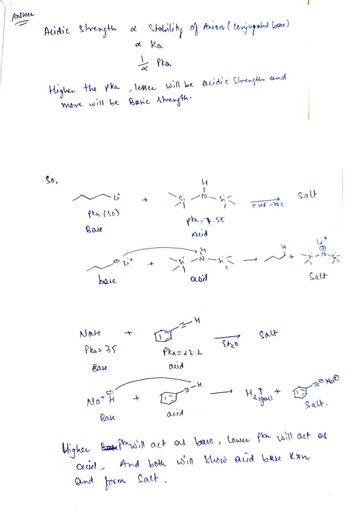 Answer
Acidic Strength ∝ Stability of Anion (conjugated base)
∝ Ka
∝ 1/Pka
Higher the pka, lesser will be acidic strength and
more will be Basic strength.
So,
Li + Si N H Si → Salt
Pka (50) pka = Salt
Base Acid
Li⁺ + Si N H Si → H + Si N Si Li⁺
base acid Salt
NaH + H → Salt
Pka = 35 Pka = 23.2 Et₂O
Base acid
Na⁺ H + H → H₂↑ (gas) + Na⊕
Base acid Salt.
Higher Pka will act as base, lower pka will act as
acid, And both will show acid base rxn
and form salt.